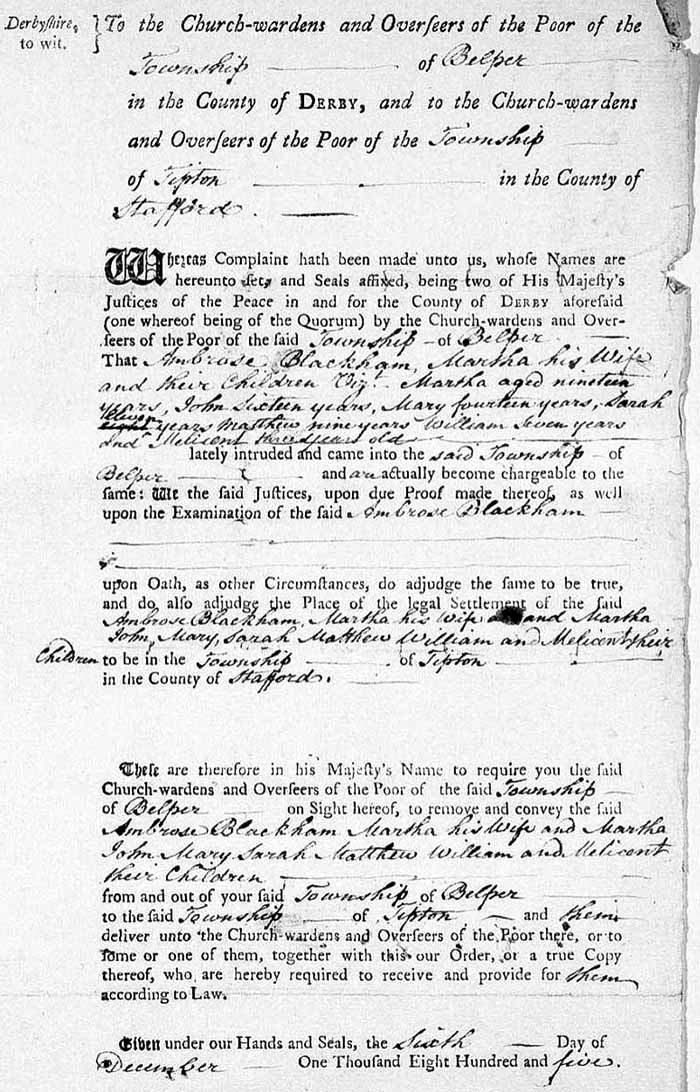 Derbyshire, to wit.
To the Church-wardens and Overſeers of the Poor of the
Township of Belper
in the County of DERBY, and to the Church-wardens
and Overſeers of the Poor of the Township
of Tipton in the County of
Stafford.
Whereas Complaint hath been made unto us, whoſe Names are
hereunto ſet, and Seals affixed, being two of His Majeſty's
Juſtices of the Peace in and for the County of DERBY aforeſaid
(one whereof being of the Quorum) by the Church-wardens and Over-
ſeers of the Poor of the ſaid Township of Belper
That Ambrose Blackham, Martha his Wife
and their Children Vizt. Martha aged nineteen
years, John Sixteen years, Mary fourteen years, Sarah
Eleven
eight years Matthew nine years William Seven years
And Melicent three years old
lately intruded and came into the said Township of
Belper and are actually become chargeable to the
ſame: We the ſaid Juſtices, upon due Proof made thereof, as well
upon the Examination of the ſaid Ambrose Blackham
upon Oath, as other Circumſtances, do adjudge the ſame to be true,
and do alſo adjudge the Place of the legal Settlement of the ſaid
Ambrose Blackham, Martha his Wife and Martha
John, Mary, Sarah Matthew William and Melicent their
Children to be in the Township of Tipton
in the County of Stafford.
Theſe are therefore in his Majeſty's Name to require you the ſaid
Church-wardens and Overſeers of the Poor of the ſaid Township
of Belper on Sight hereof, to remove and convey the ſaid
Ambrose Blackham Martha his Wife and Martha
John Mary Sarah Matthew William and Melicent
their Children
from and out of your ſaid Township of Belper
to the ſaid Township of Tipton and them
deliver unto the Church-wardens and Overſeers of the Poor there, or to
ſome or one of them, together with this our Order, or a true Copy
thereof, who are hereby required to receive and provide for them
according to Law.
Given under our Hands and Seals, the Sixth Day of
December One Thouſand Eight Hundred and five.